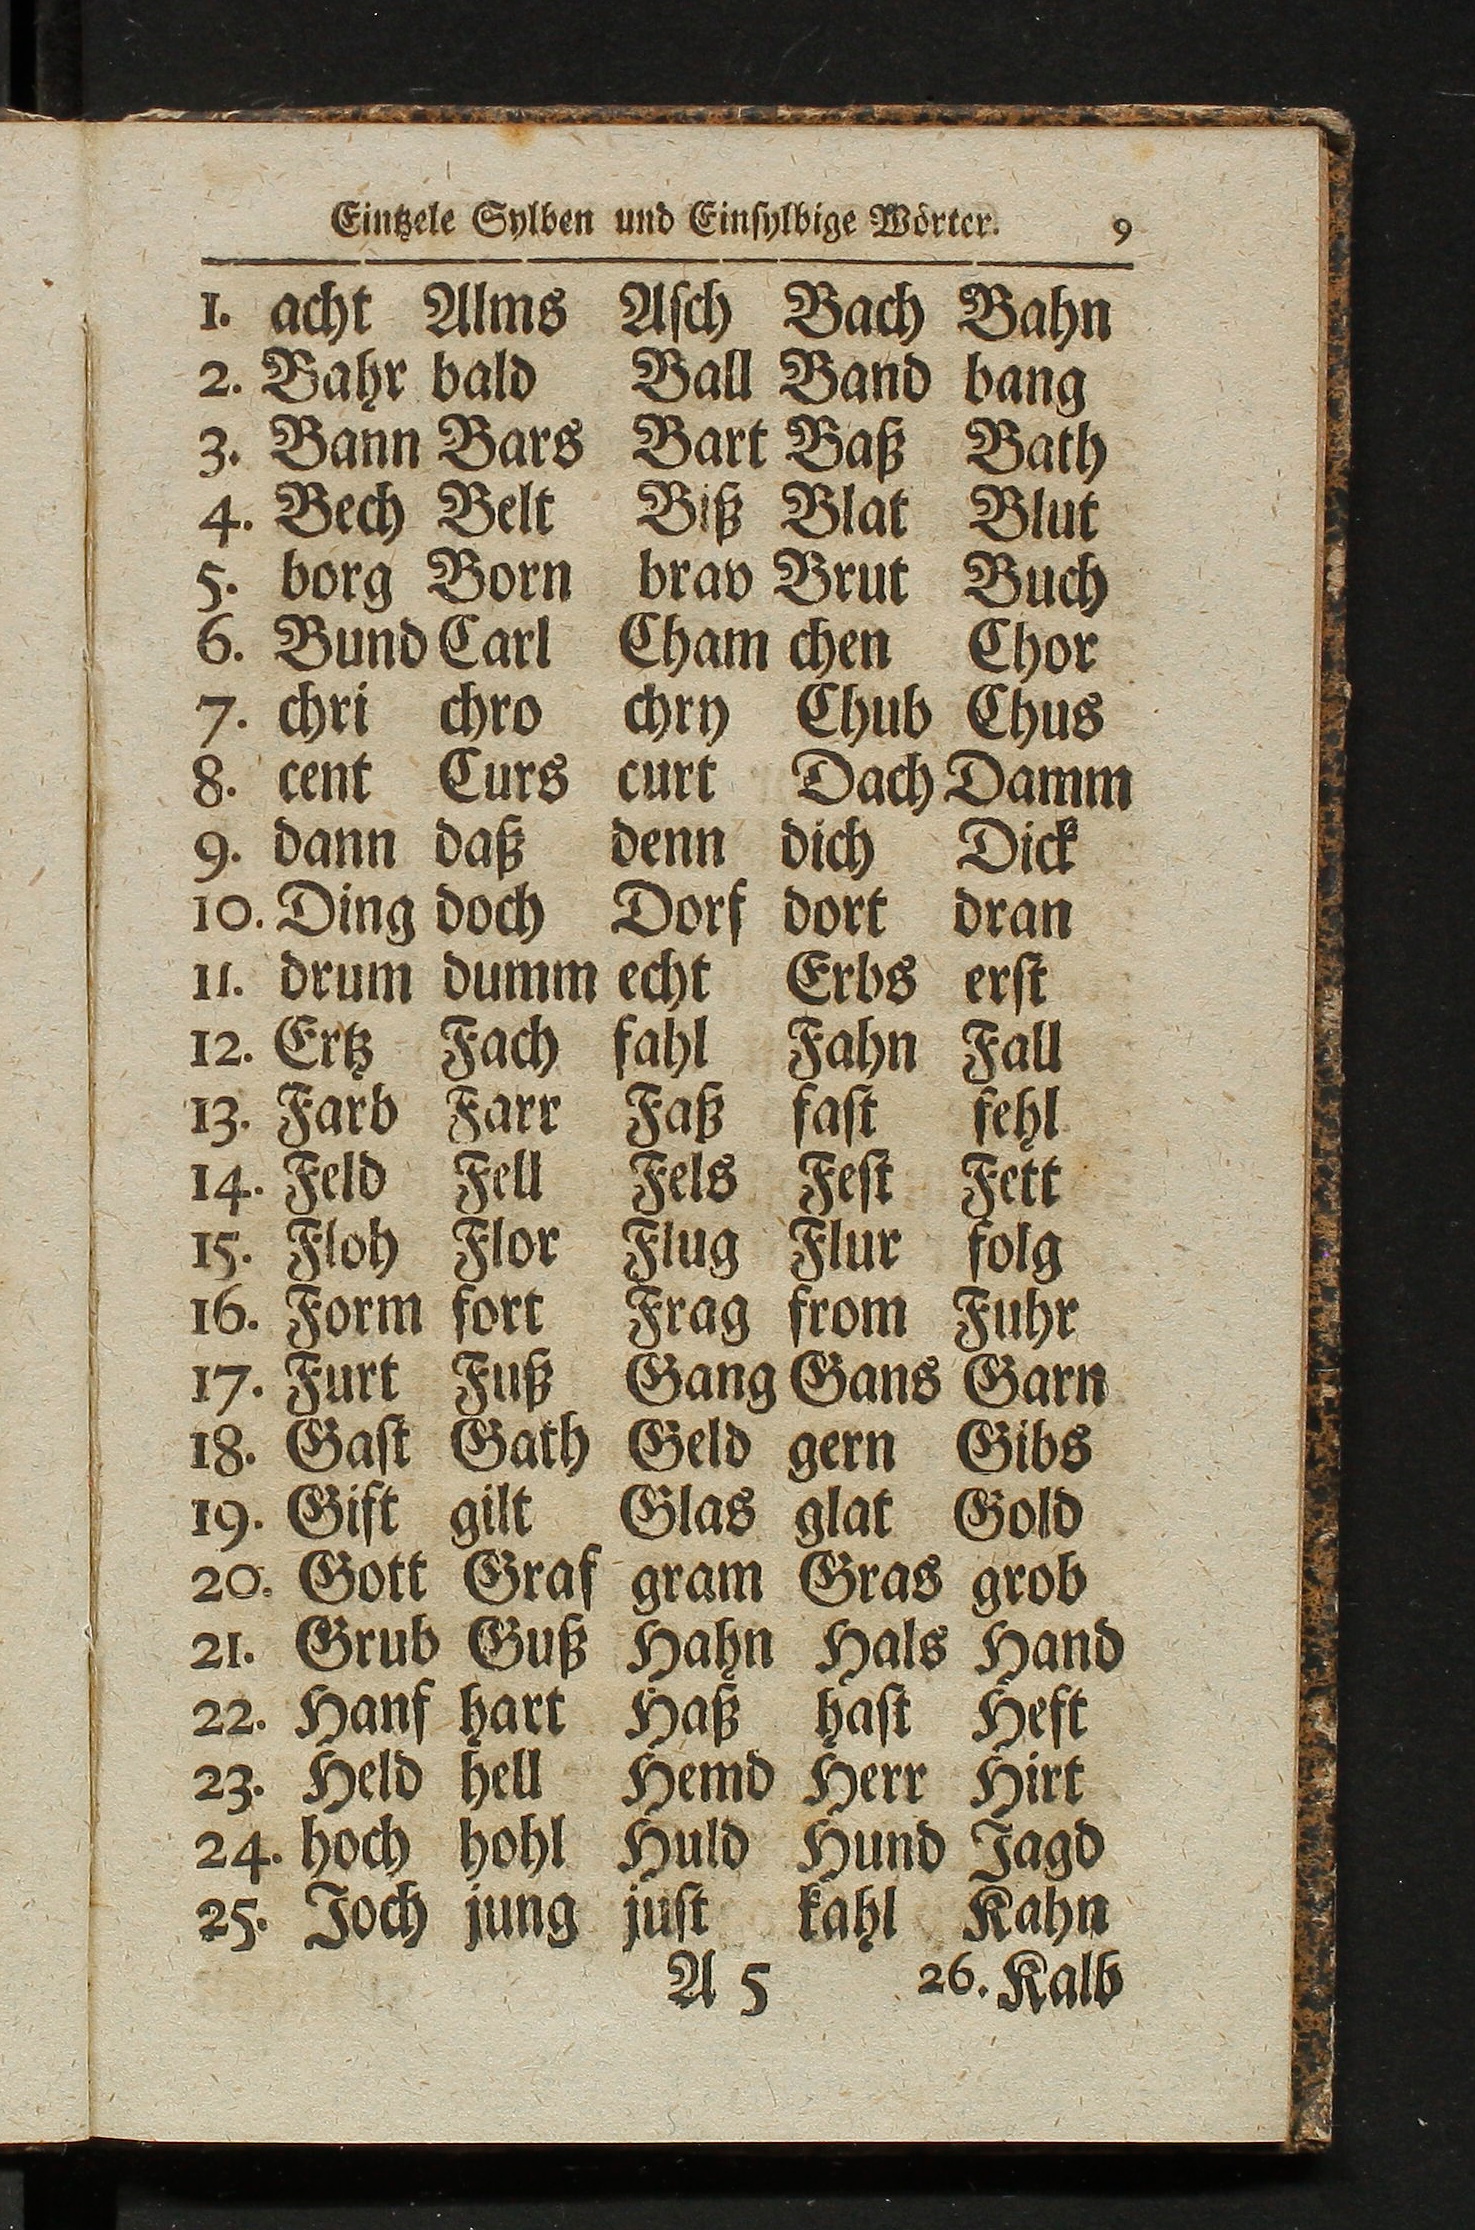 Eintzele Sylben und Einſylbige Wörter. 9
1. acht Alms Aſch Bach Bahn
2. Bahr bald Ball Band bang
3. Bann Bars Bart Baß Bath
4. Bech Belt Biß Blat Blut
5. borg Born brav Brut Buch
6. Bund Carl Cham chen Chor
7. chri chro chry Chub Chus
8. cent Curs curt Dach Damm
9. dann daß denn dich Dick
10. Ding doch Dorf dort dran
11. drum dumm echt Erbs erſt
12. Ertz Fach fahl Fahn Fall
13. Farb Farr Faß faſt fehl
14. Feld Fell Fels Feſt Fett
15. Floh Flor Flug Flur folg
16. Form fort Frag from Fuhr
17. Furt Fuß Gang Gans Garn
18. Gaſt Gath Geld gern Gibs
19. Gift gilt Glas glat Gold
20. Gott Graf gram Gras grob
21. Grub Guß Hahn Hals Hand
22. Hanf hart Haß haſt Heft
23. Held hell Hemd Herr Hirt
24. hoch hohl Huld Hund Jagd
25. Joch jung juſt kahl Kahn
A 5 26. Kalb